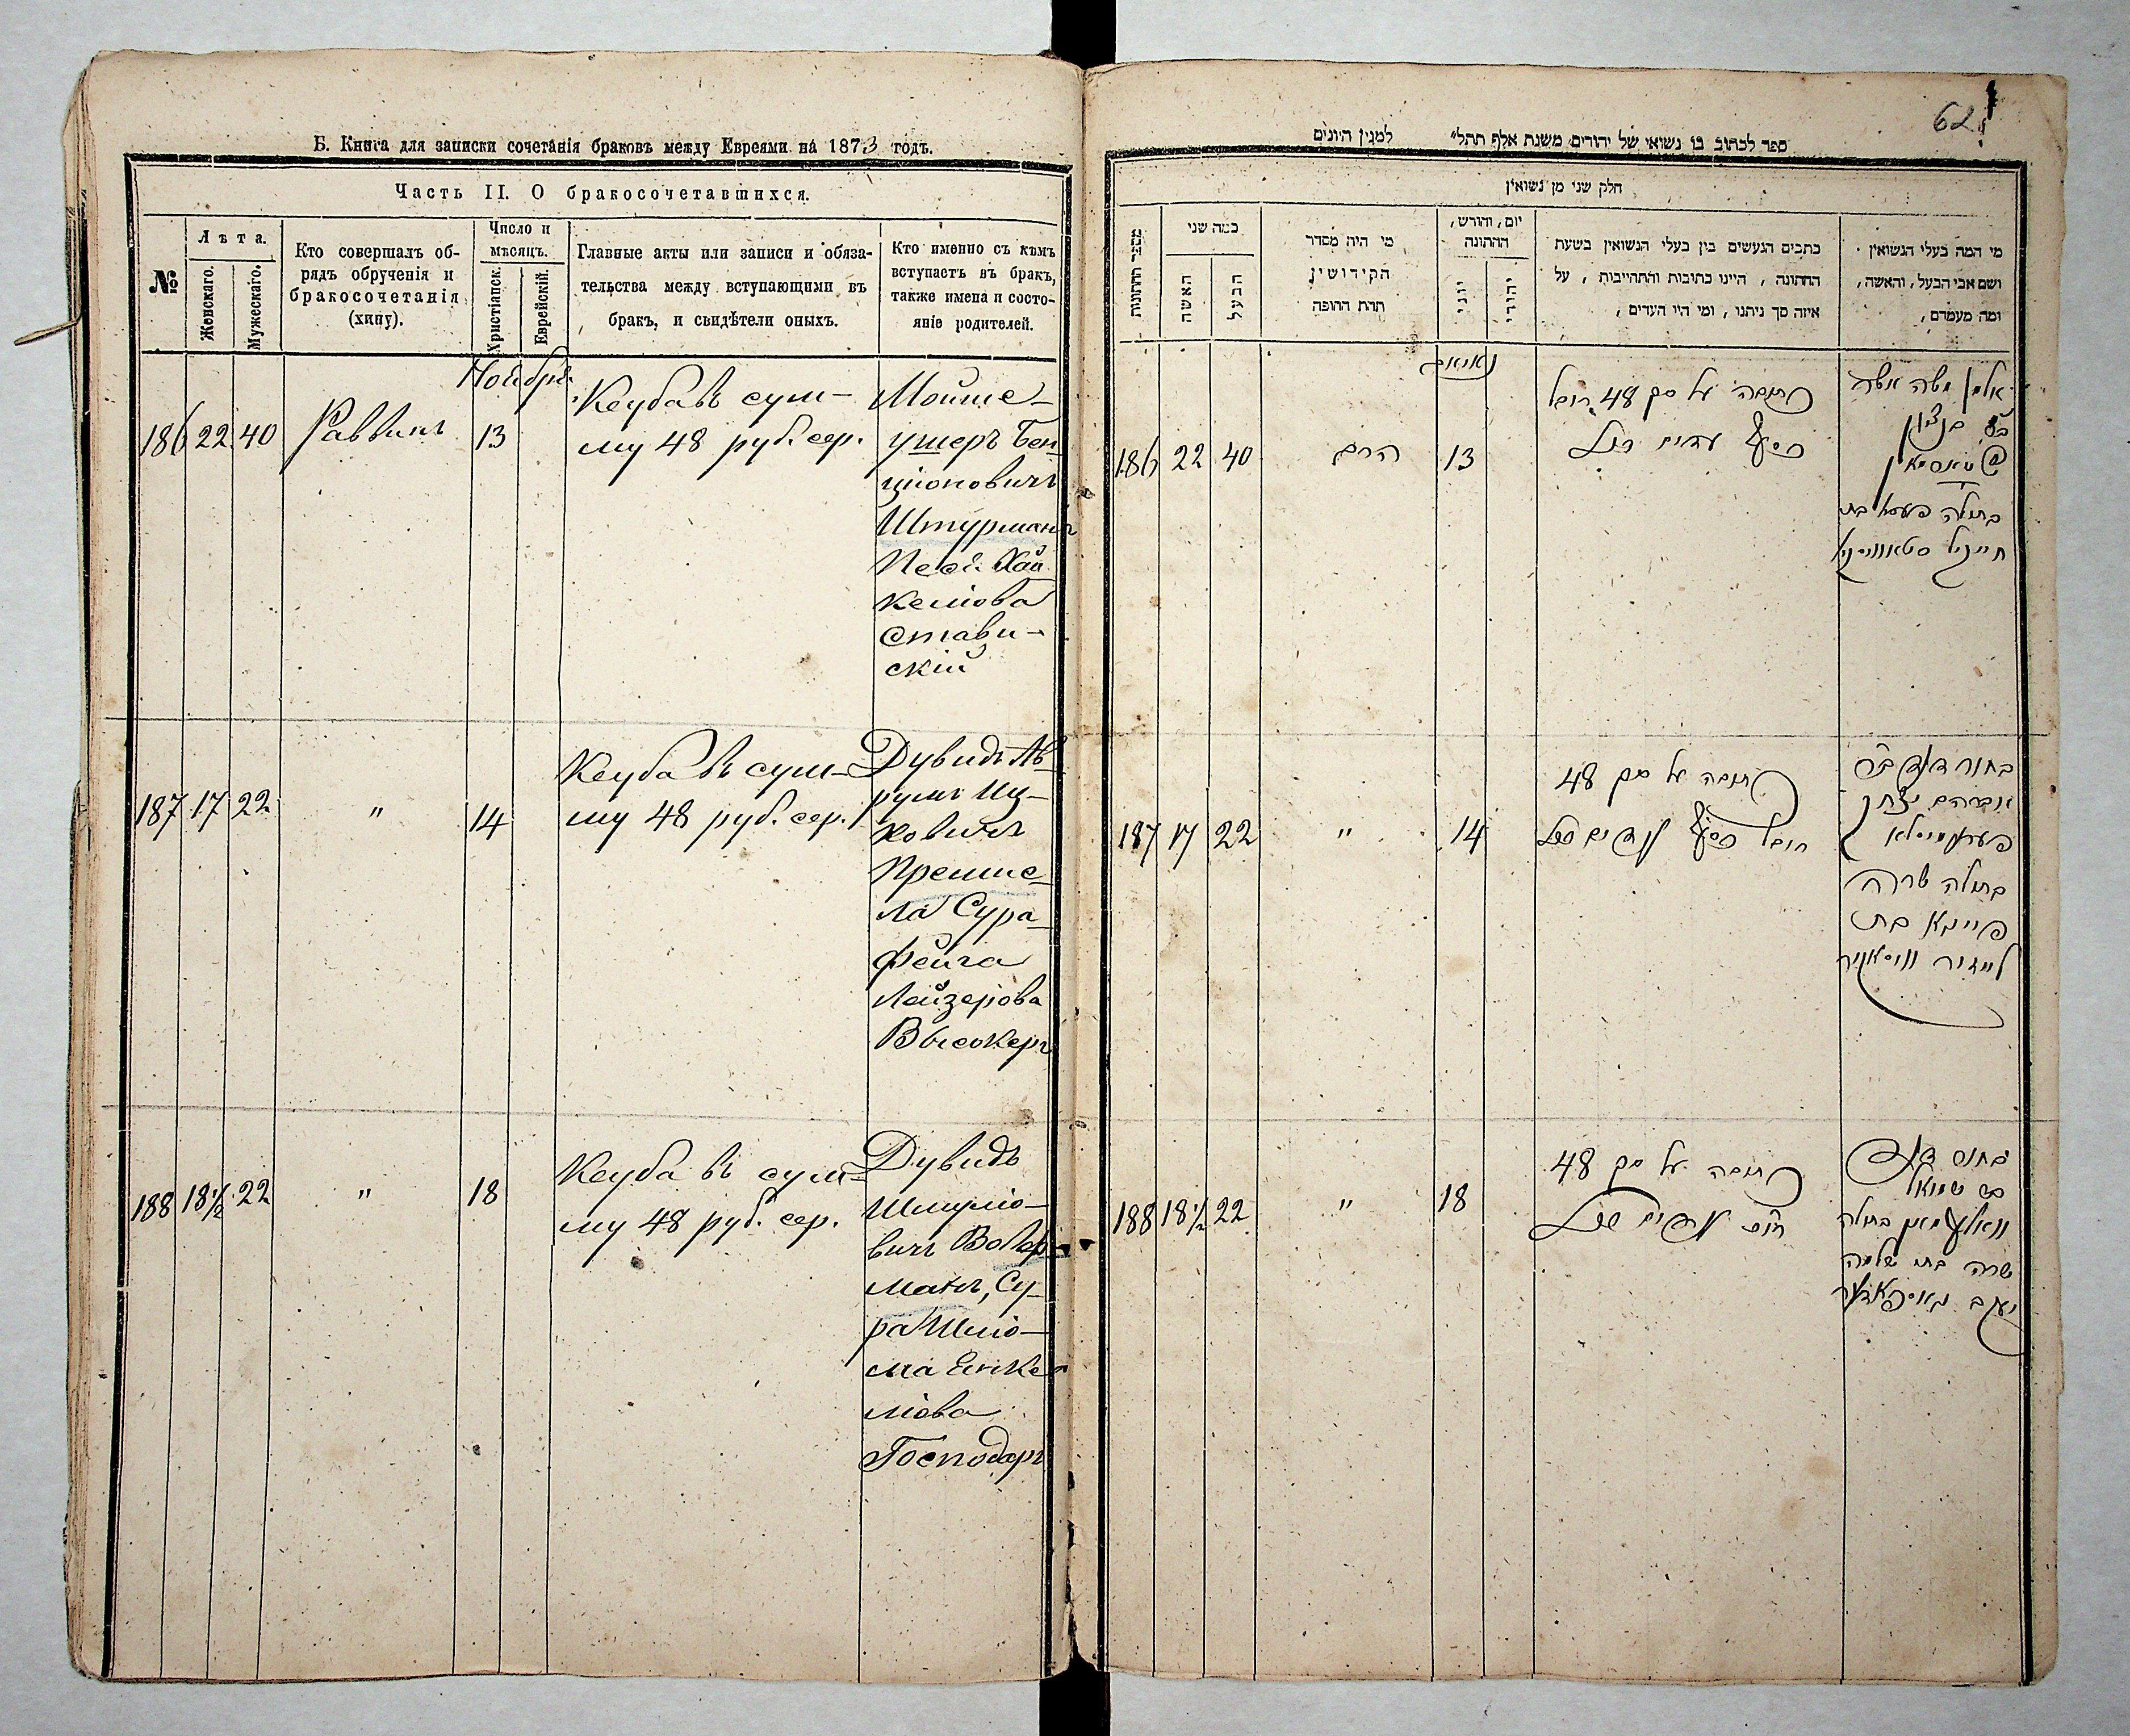 Б. Книга для записки сочетанія браковъ между Евреями на 1873 годъ.
Часть II. О бракосочетавшихся.
№
Лѣта.
Женскаго.
Мужескаго.
Кто совершалъ об-
рядъ обрученія и
бракосочетанія
(хипу).
Число и
мѣсяцъ.
Христіанск.
Еврейскій.
Главные акты или записи и обяза-
тельства между вступающими въ
бракъ, и свидѣтели оныхъ.
Кто именно съ кѣмъ
вступаетъ въ бракъ,
также имена и состо-
яніе родителей.
Ноября
186 22 40 Раввинъ 13
Кеуба въ сум-
му 48 руб. сер.
Мойше-
ушеръ Бен
ціоновичъ
Штурманъ
Песя Хай
келіова
Стави-
скій
187 17 22 " 14
Кеуба въ сум-
му 48 руб. сер.
Дувидъ Ав-
румъ Иц-
ковичъ
Премис-
ла Сура-
Фейга
Лейзерова
Высокеръ
188 18½ 22 " 18
Кеуба въ сум-
му 48 руб. сер.
Дувидъ
Шмуліо-
вичъ Волер-
манъ, Су-
ра Шлё-
ма Енке
ліова
Господарь
62
ספר לכתוב בו נשואי של יהודים משנת אלף תתל״ למנין היונים
חלק שני מן נשואין
מספר החתונות
כמה שני
האשה
הבעל
מי היה מסדר
הקידושין
תחת החופה
יום, וחורש,
החתונה
יוני
יהודי
כתבים הנעשים בין בעלי הנשואין בשעת
החתונה, היינו כתובות והתחייבות, על
איזה סך ניתנו, ומי היו העדים,
מי המה בעלי הנשואין
ושם אבי הבעל, והאשה,
ומה מעמדם,
186 22 40 הרב 13
כתובה על סך 48 רובל
אלמן משה אשר
בן ציון
בתולה פעסא בת
חייקיל סטאוויסקי
187 17 22 " 14
כתובה על סך 48
בחור דוד בר
אברהם יצחק
פרעמיסלא
בתולה שרה
פייגא בת
לייזיר וויסאקיר
188 18½ 22 " 18
כתובה על סך 48
בחור דוד
בר שמואל
בתולה
שרה בת שלמה
יעקב